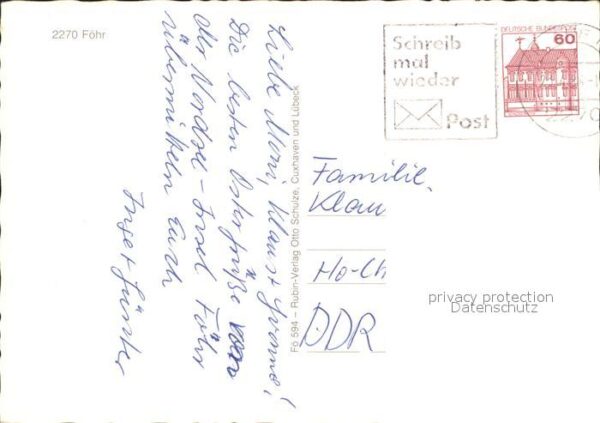 2270 Föhr
Schreib
mal
wieder
Post
DEUTSCHE BUNDESPOST
60
Liebe Marri, Klaus + Yvonne!
Die besten Ostergrüße von
der Nordsee-Insel Föhr
übermitteln Euch
Inge + Günter
Fö 594 – Rubin-Verlag Otto Schulze, Cuxhaven und Lübeck
Familie
Klau
Ho-Ch
DDR
privacy protection
Datenschutz